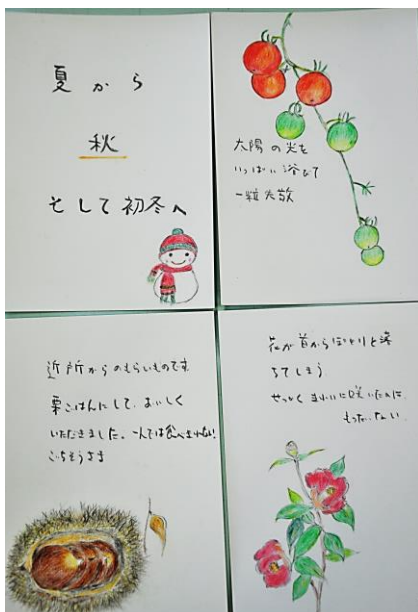 夏から
秋
そして初冬へ
太陽の光を
いっぱい浴びて
一粒失敬
近所からのもらいものです
栗ごはんにして、おいしく
いただきました。一人では食べきれない!
ごちそうさま
花が首からぽとりと落
ちてしまう
せっかくきれいに咲いたのに
もったいない